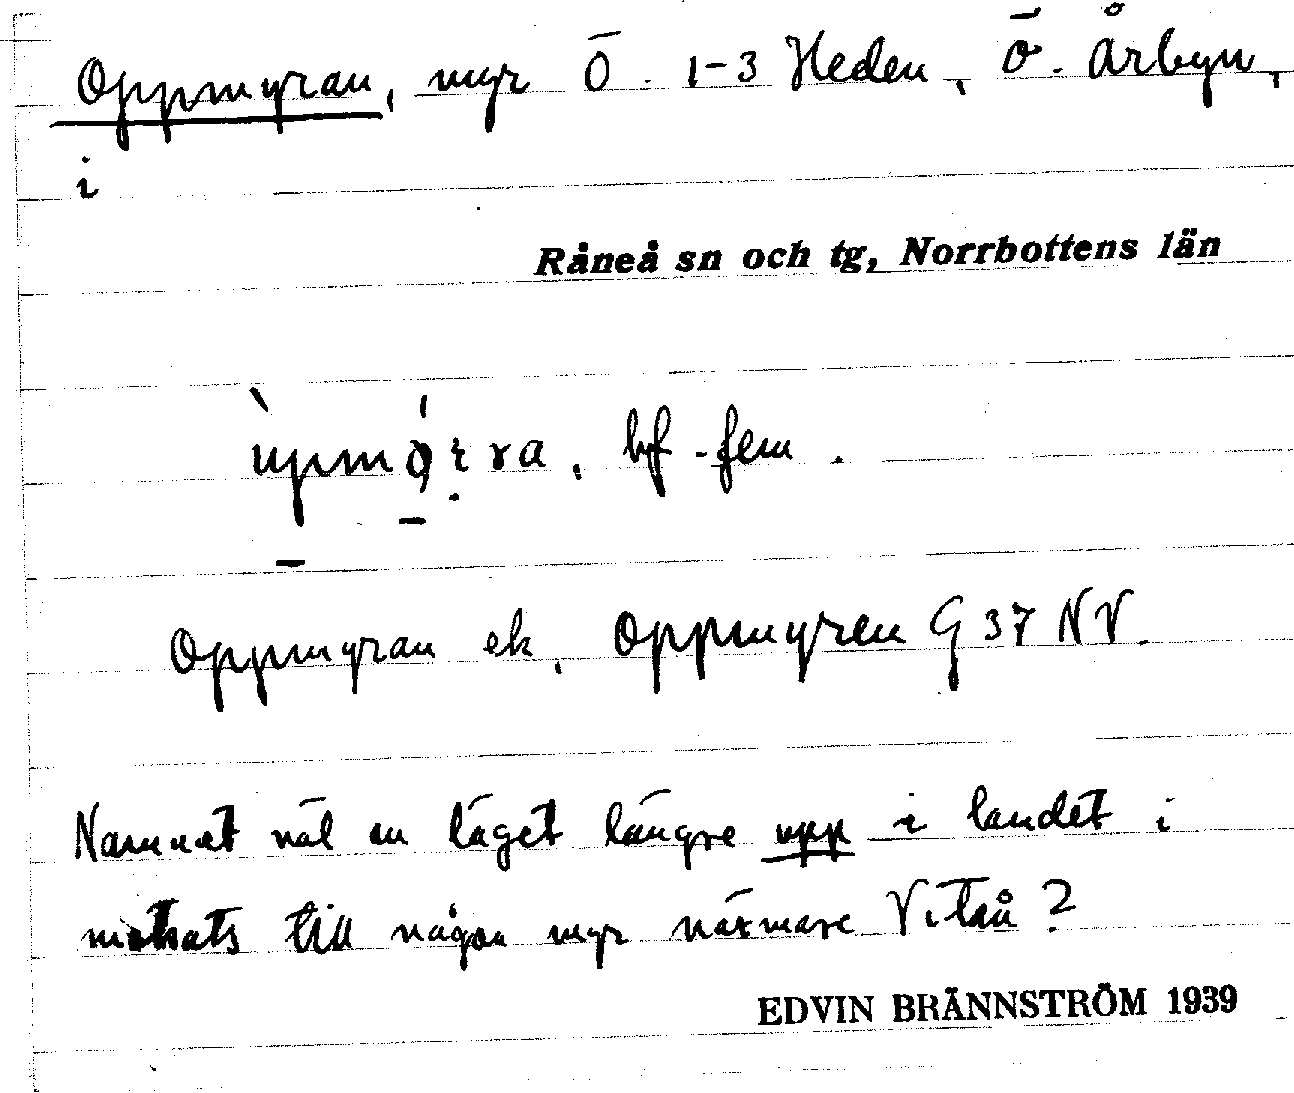 Oppmyran, myr Ö. 1-3 Heden, Ö. Årbyn,
i
Råneå sn och tg, Norrbottens län
bf-fem.
Oppmyran ek, Oppmyren G 37 NV.
Namnet väl en läget längre upp i landet i
motsats till någon myr närmare Vitån?
EDVIN BRÄNNSTRÖM 1939